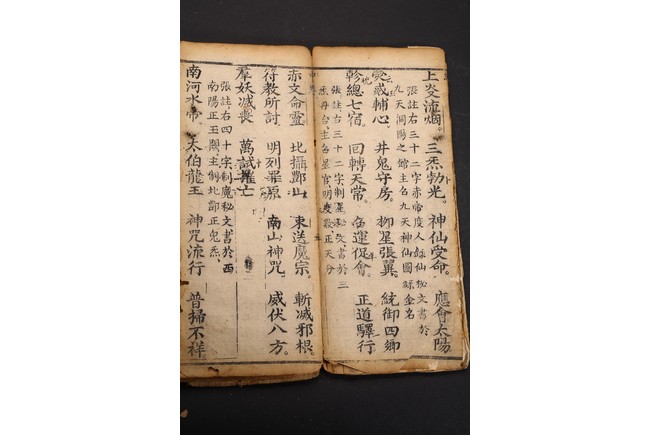 上炎流烟。三炁勃光。神仙受命。應會太陽
張註右三十二字赤帝度人錄仙秘文書於
九天洞陽之館主召九天神仙圖籙金名
熒惑輔心。井鬼守房。柳星張翼。統御四鄉
軫總七宿。回轉天常。召運促會。正道驛行
張註右三十二字制星秘文書於三
炁丹台主召星官明度數正天分
赤文命靈 北攝酆山 束送魔宗。斬滅邪根。
符教所討 明列罪原 南山神咒。威伏八方。
羣妖滅喪 萬試摧亡
張註右四十字制魔秘文書於西
主制北酆正鬼炁
南河水帝 太伯龍王 神咒流行 普掃不祥